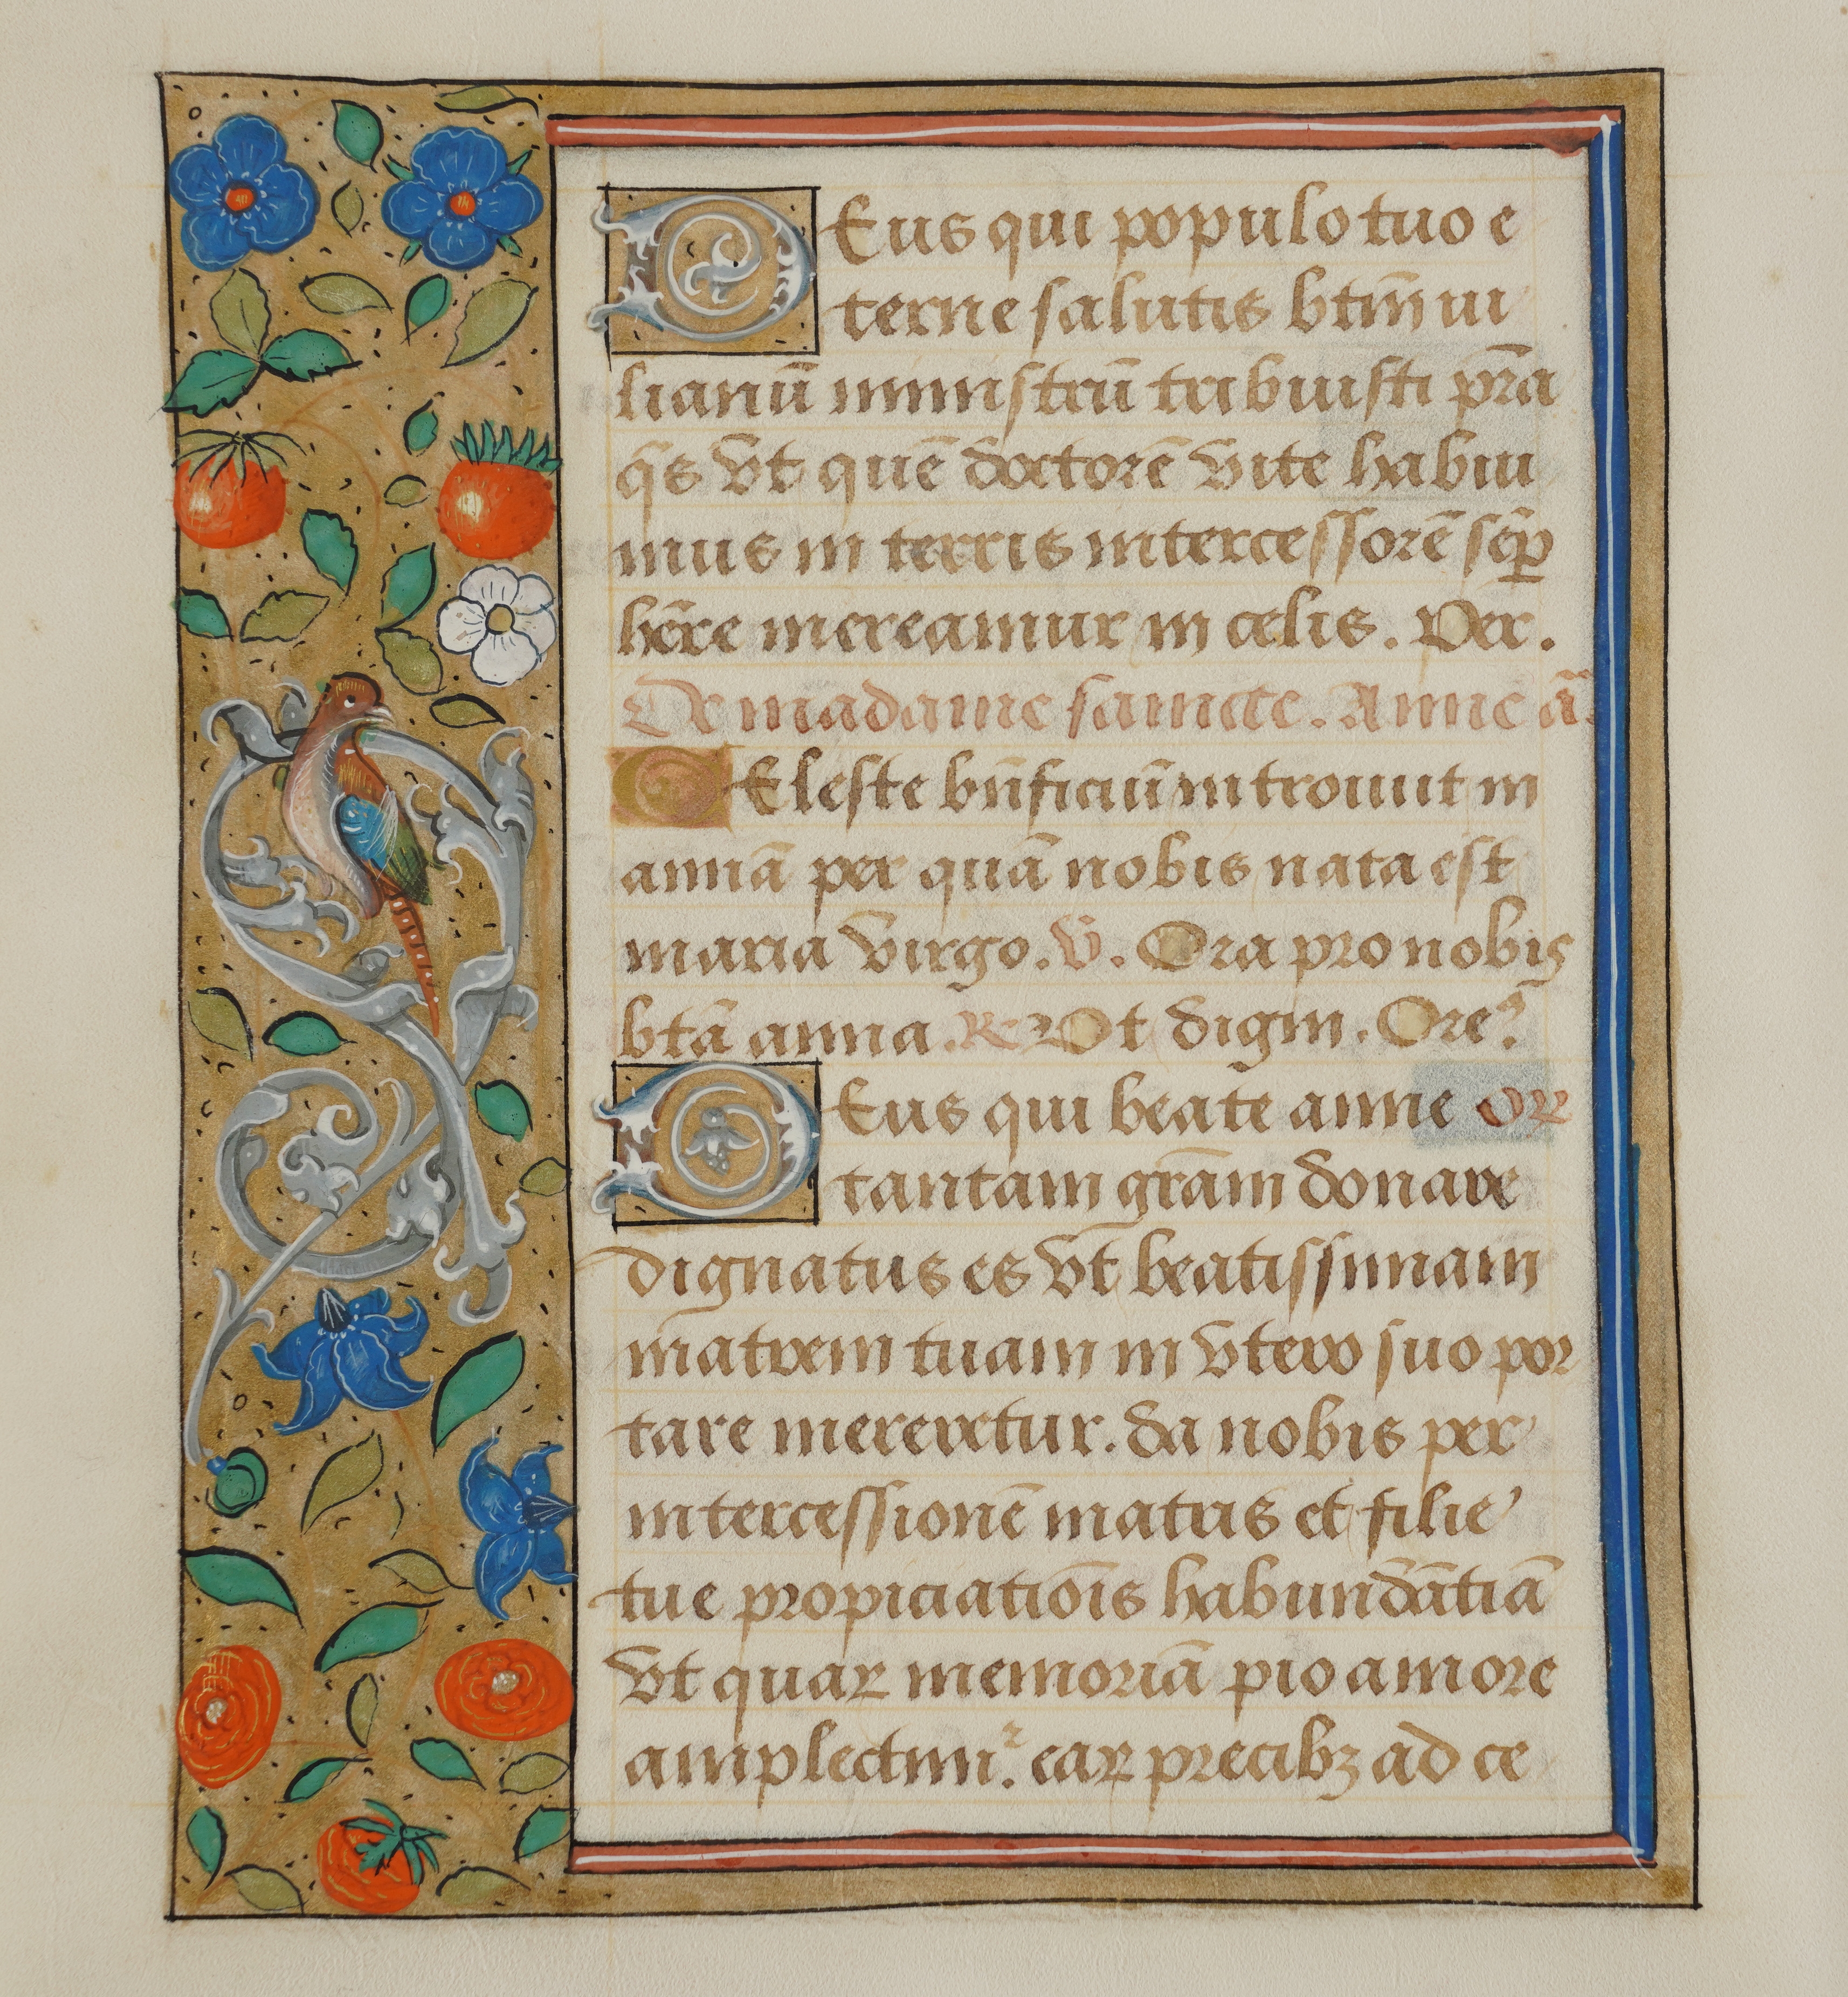 DEus qui populo tuo e
terne salutis btm̄ iu
lianū ministrū tribuisti pr̄a
q̄s vt quē doctorē vite habui
mus in terris intercessorē sēp̲
hēre mereamur in celis. Per.
De madame saincte. Anne ā.
CEleste bn̄ficiū introiuit in
annā per quā nobis nata est
maria virgo. v̄. Ora pro nobis
btā anna. R Vt digni. Ore?
DEus qui beate anne orꝝ
tantam grām donare
dignatus es vt beatissimam
matrem tuam in vtero suo por
tare mereretur. da nobis per
intercessionē matris et filie
tue propiciatiōis habundātiā
vt quaꝝ memoriā pio amore
amplectim̉. eaꝝ precibꝫ ad ce